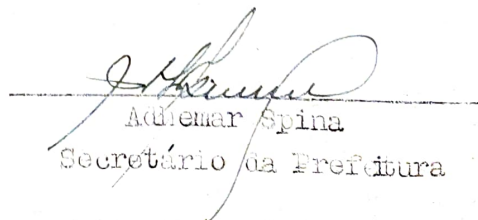 Adhemar Spina
Secretário da Prefeitura